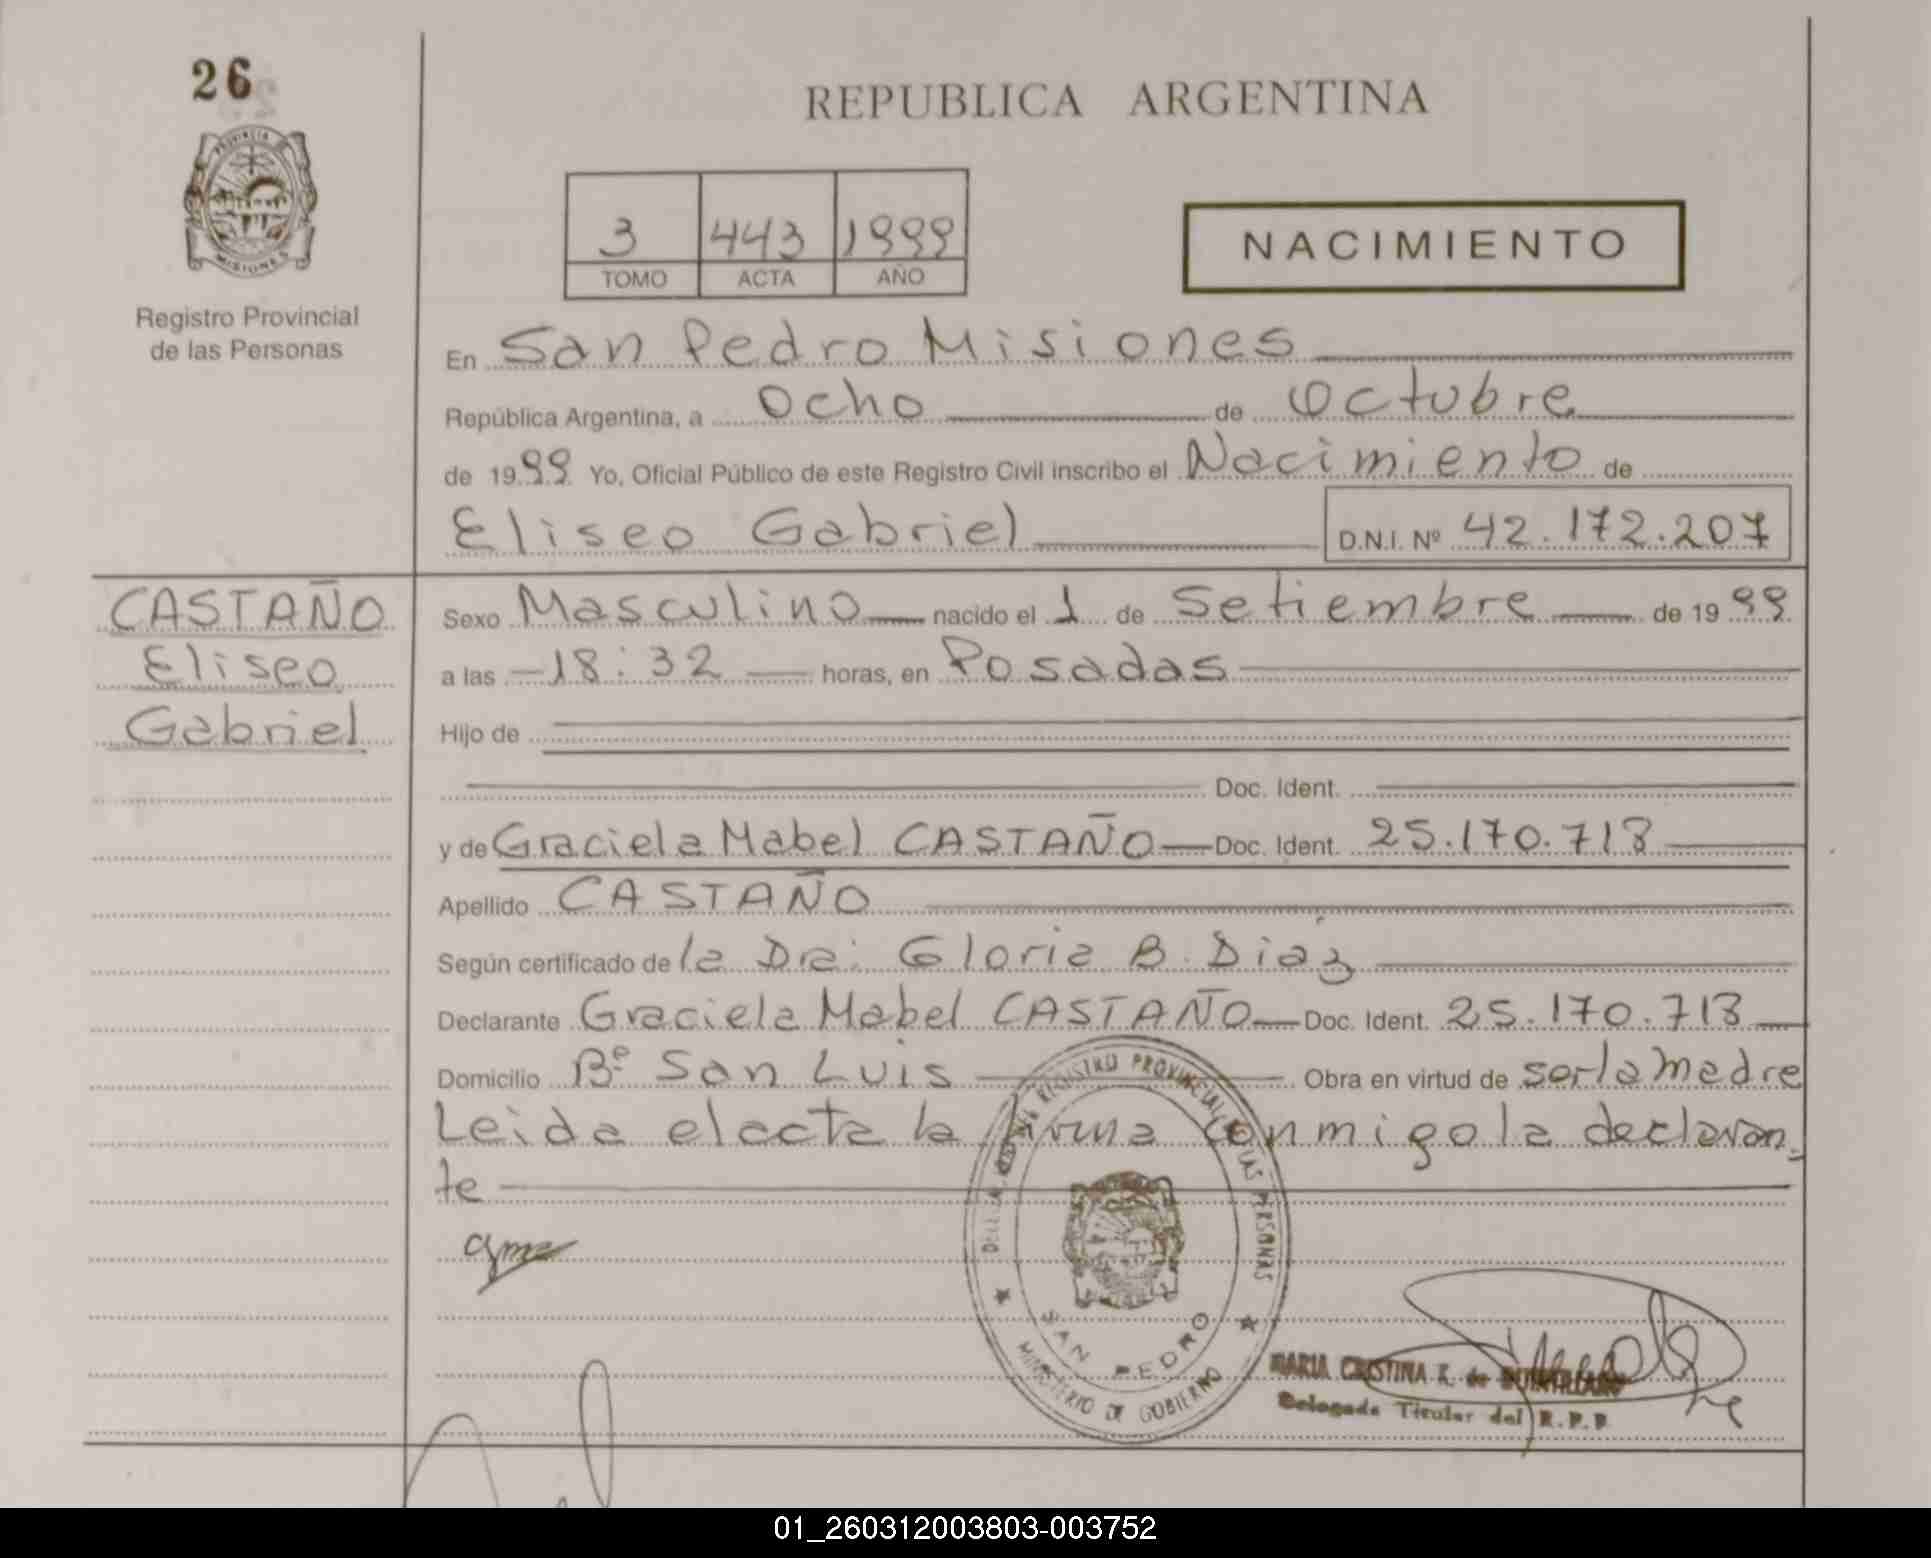 26
REPUBLICA ARGENTINA
PROVINCIA DE
MISIONES
Registro Provincial
de las Personas
3 443 1999
TOMO ACTA AÑO
NACIMIENTO
En San Pedro Misiones
República Argentina, a Ocho de Octubre
de 1999 Yo, Oficial Público de este Registro Civil inscribo el Nacimiento de
Eliseo Gabriel D.N.I. Nº 42.172.207
CASTAÑO
Eliseo
Gabriel
Sexo Masculino nacido el 1 de Setiembre de 1999
a las 18:32 horas, en Posadas
Hijo de
Doc. Ident.
y de Graciela Mabel CASTAÑO Doc. Ident. 25.170.713
Apellido CASTAÑO
Según certificado de la Dra: Gloria B. Diaz
Declarante Graciela Mabel CASTAÑO Doc. Ident. 25.170.713
Domicilio Bº San Luis Obra en virtud de ser la madre
Leida el acta la firma conmigo la declaran
te
REGISTRO PROVINCIAL DE LAS PERSONAS
SAN PEDRO
MINISTERIO DE GOBIERNO
MARIA CRISTINA K. de
Delegada Titular del R.P.P.
01_260312003803-003752